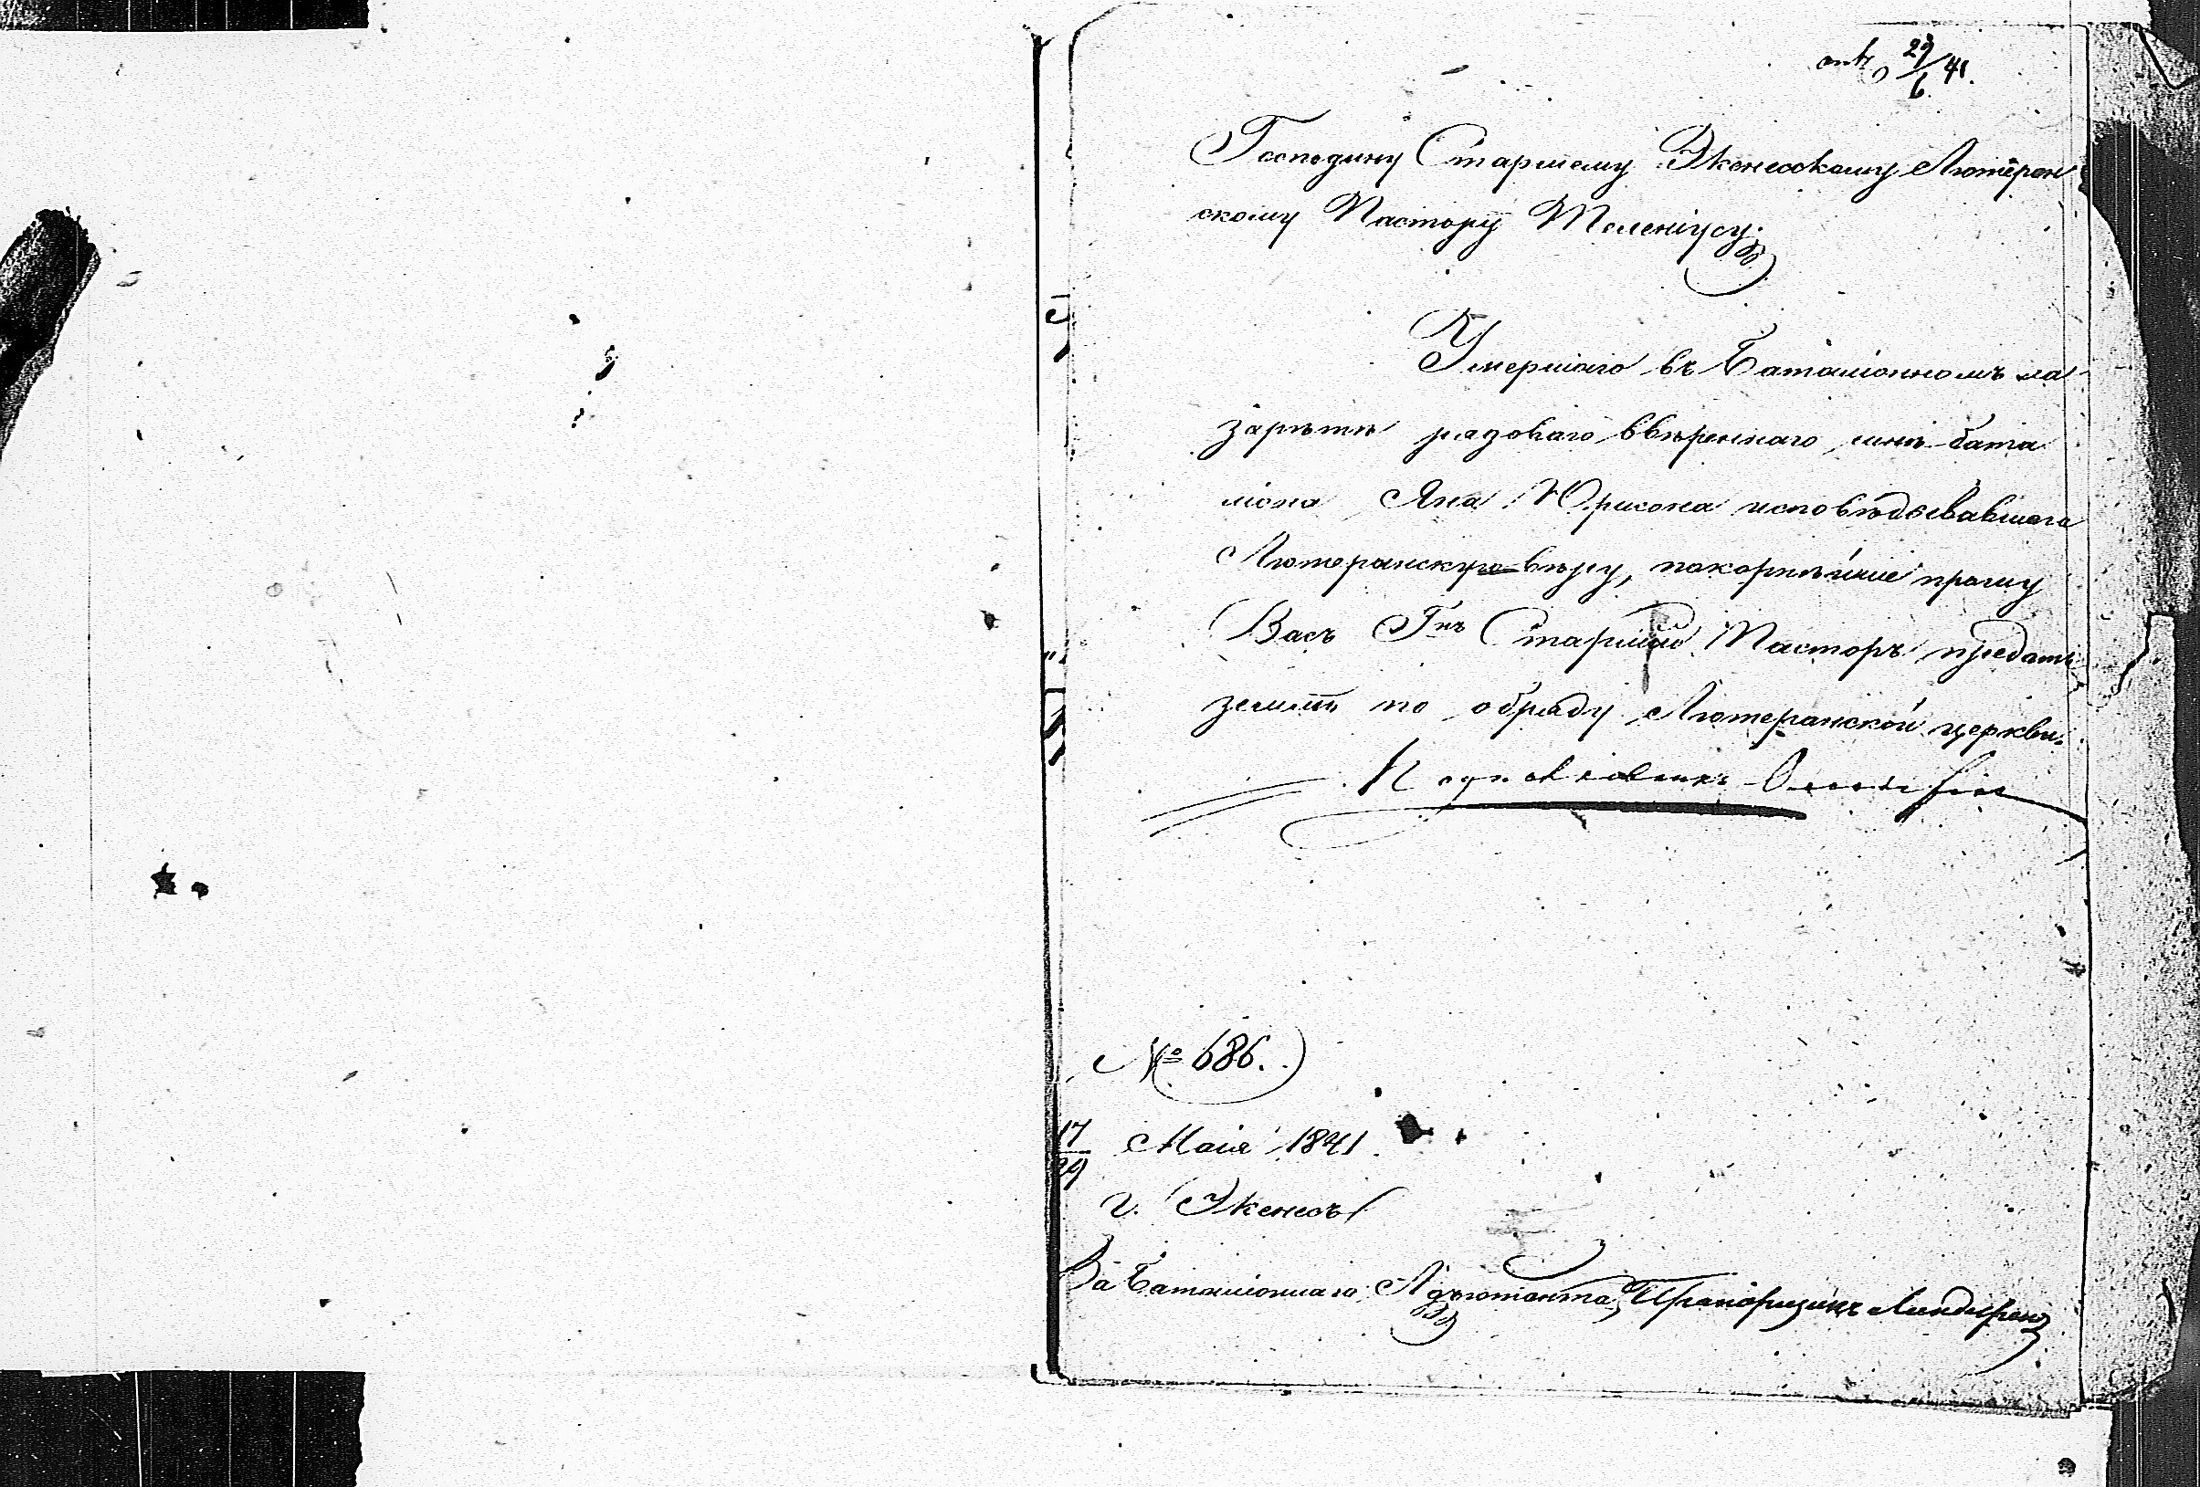 29/6 41.
Господину Старшему Экенесскому Лютеран
скому Пастору Телениусу.
Умершаго въ Баталіонномъ ла
заретѣ рядоваго ввѣреннаго мнѣ бата
ліона Яна Юрисона исповѣдывавшаго
Лютеранскую вѣру, покорнѣйше прошу
Васъ Гнъ Старшій Пасторъ предать
землѣ по обряду Лютеранской церкви.
Подполковникъ
№ 686.
17/29 Маія 1841
г. Экенесъ
За Баталіоннаго Адъютанта, Прапорщикъ Линдгрен